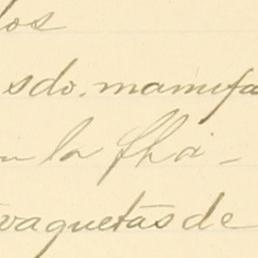 los
sdo. manifa
n la fha -
vaquetas de